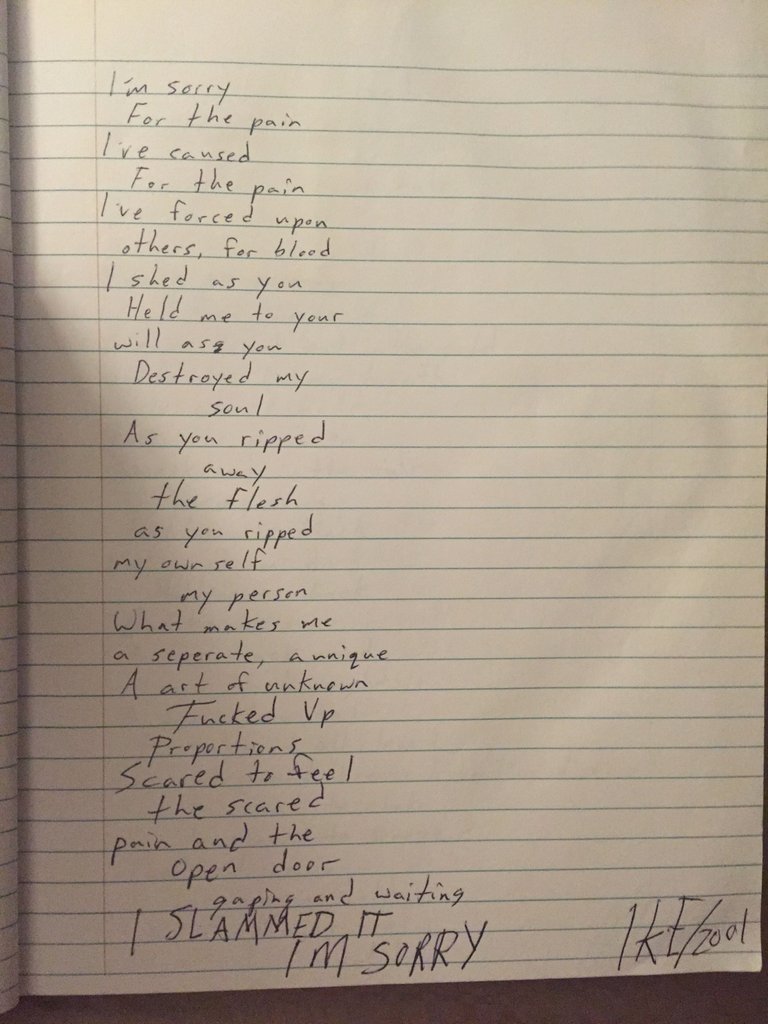 I'm sorry
For the pain
I've caused
For the pain
I've forced upon
others, for blood
I shed as you
Held me to your
will as you
Destroyed my
soul
As you ripped
away
the flesh
as you ripped
my own self
my person
What makes me
a seperate, a unique
A art of unknown
Fucked Up
Proportions
Scared to feel
the scared
pain and the
Open door
gaping and waiting
I SLAMMED IT
I'M SORRY
/2001